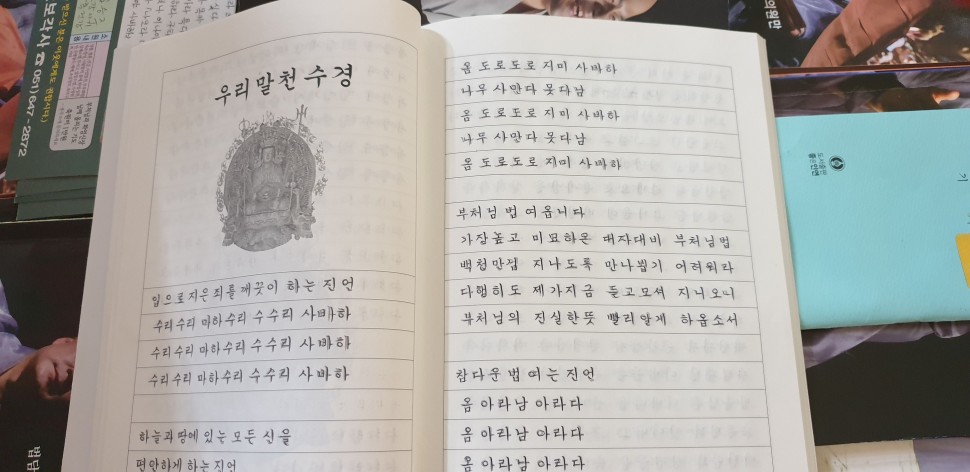 우리말천수경
입으로지은죄를깨끗이 하는 진언
수리수리 마하수리 수수리 사바하
수리수리 마하수리 수수리 사바하
수리수리 마하수리 수수리 사바하
하늘과땅에있는모든신을
편안하게하는진언
옴 도로도로 지미 사바하
나무 사만다 못다남
옴 도로도로 지미 사바하
나무 사만다 못다남
옴 도로도로 지미 사바하
부처님 법 여옵니다
가장높고 미묘하온 대자대비 부처님법
백청만겁 지나도록 만나뵙기 어려워라
다행히도 제가지금 듣고모셔 지니오니
부처님의 진실한뜻 빨리알게 하옵소서
참다운 법 여는 진언
옴 아라남 아라다
옴 아라남 아라다
옴 아라남 아라다
보각사 ☎ 051)647-2872
의원만
좋은인연
기
법단